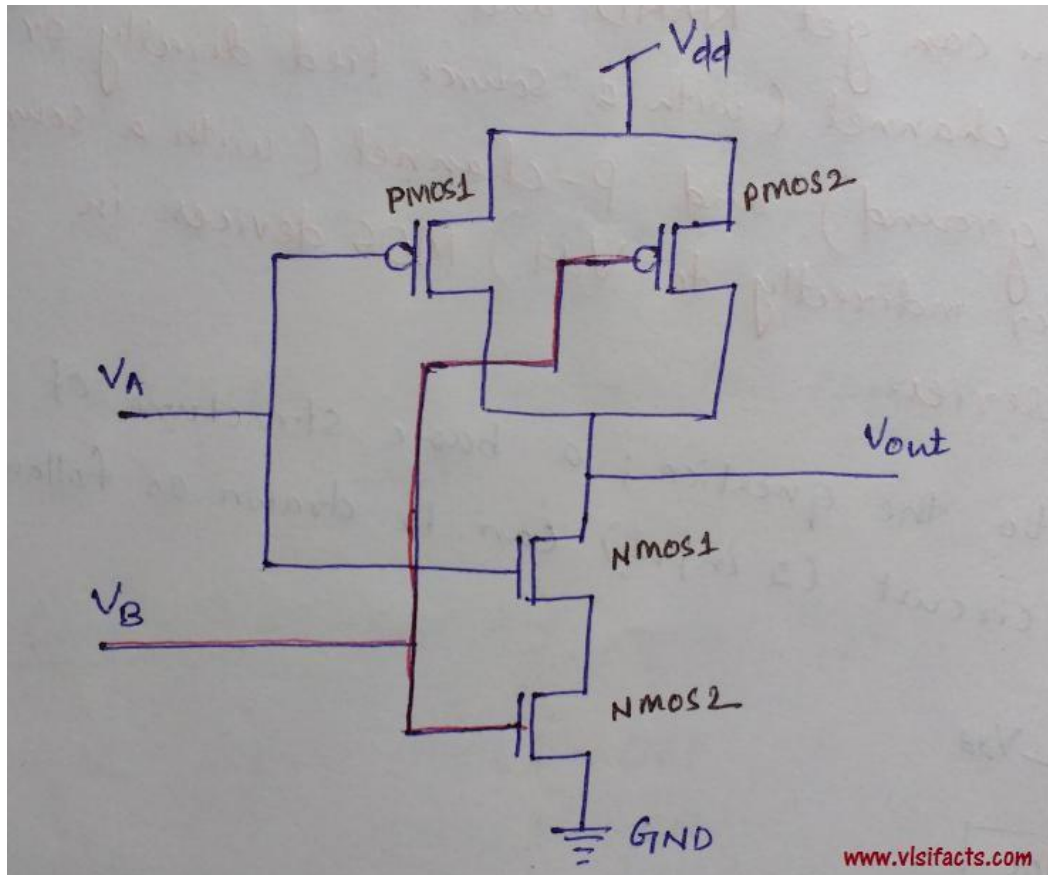 Vdd
PMOS1
PMOS2
VA
Vout
NMOS1
VB
NMOS2
GND
www.vlsifacts.com